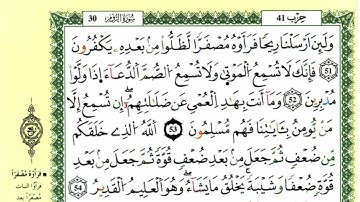 30 سُورَةُ الرُّومِ حِزْب 41
وَلَئِنَ اَرْسَلْنَا رِيحاً فَرَأَوْهُ مُصْفَرّاً لَّظَلُّواْ مِنۢ بَعْدِهِۦ يَكْفُرُونَ
51 فَإِنَّكَ لَا تُسْمِعُ الْمَوْت۪يٰ وَلَا تُسْمِعُ الصُّمَّ الدُّعَآءَ اِذَا وَلَّوْاْ
مُدْبِرِينَ 52 وَمَآ أَنتَ بِهَٰدِ الْعُمْيِ عَن ضَلَٰلَتِهِمُۥٓ إِن تُسْمِعُ إِلَّا
مَنْ يُّومِنُ بِـَٔايَٰتِنَا فَهُم مُّسْلِمُونَ 53 اَللَّهُ الَّذِے خَلَقَكُم
مِّن ضُعْفٍ ثُمَّ جَعَلَ مِنۢ بَعْدِ ضُعْفٍ قُوَّةً ثُمَّ جَعَلَ مِنۢ بَعْدِ
قُوَّةٍ ضُعْفاً وَشَيْبَةً يَخْلُقُ مَا يَشَآءُ وَهُوَ الْعَلِيمُ الْقَدِيرُ 54
فَرَأَوْهُ مُصْفَرّاً